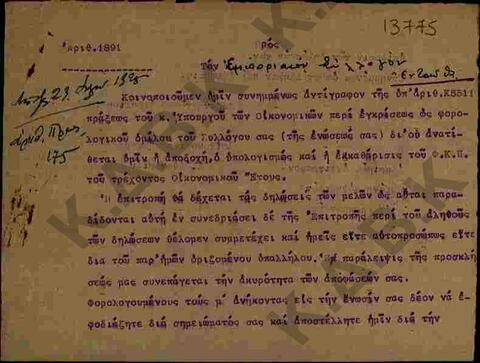 13775
Ἀριθ.1891
Πρός
Τὸν Ἐμπορικὸν Σύλλογον
Ἐνταῦθα
Κοινοποιοῦμεν ὑμῖν συνημμένως ἀντίγραφον τῆς ὑπ'ἀριθ.Κ5511
πράξεως τοῦ κ.Ὑπουργοῦ τῶν Οἰκονομικῶν περὶ ἐγκρίσεως ὡς φορο-
λογικοῦ ὁμίλου τοῦ Συλλόγου σας (τῆς ἑνώσεως σας) δι'οὗ ἀνατί-
θεται ὑμῖν ἡ ἀποδοχή, ὁ ὑπολογισμὸς καὶ ἡ ἐκκαθάρισις τοῦ Φ.Κ.Π.
τοῦ τρέχοντος Οἰκονομικοῦ Ἔτους.
Ἡ ἐπιτροπὴ θὰ δέχεται τὰς δηλώσεις τῶν μελῶν ὡς αὗται παρα-
δίδονται αὐτῇ ἐν συνεδριάσει δὲ τῆς Ἐπιτροπῆς περὶ τοῦ ἀληθοῦς
τῶν δηλώσεων θέλομεν συμμετέχει καὶ ἡμεῖς εἴτε αὐτοπροσώπως εἴτε
δια τοῦ παρ'ἡμῶν ὁριζομένου ὑπαλλήλου. παράλειψις τῆς προσκλή
σεώς μας συνεπάγεται τὴν ἀκυρότητα τῶν ἀποφάσεών σας.
Φορολογουμένους τοὺς μὴ ἀνήκοντας εἰς τὴν ἕνωσίν σας δέον νὰ ἐ-
φοδιάζητε διὰ σημειώματός σας καὶ ἀποστέλλητε ἡμῖν διὰ τὴν